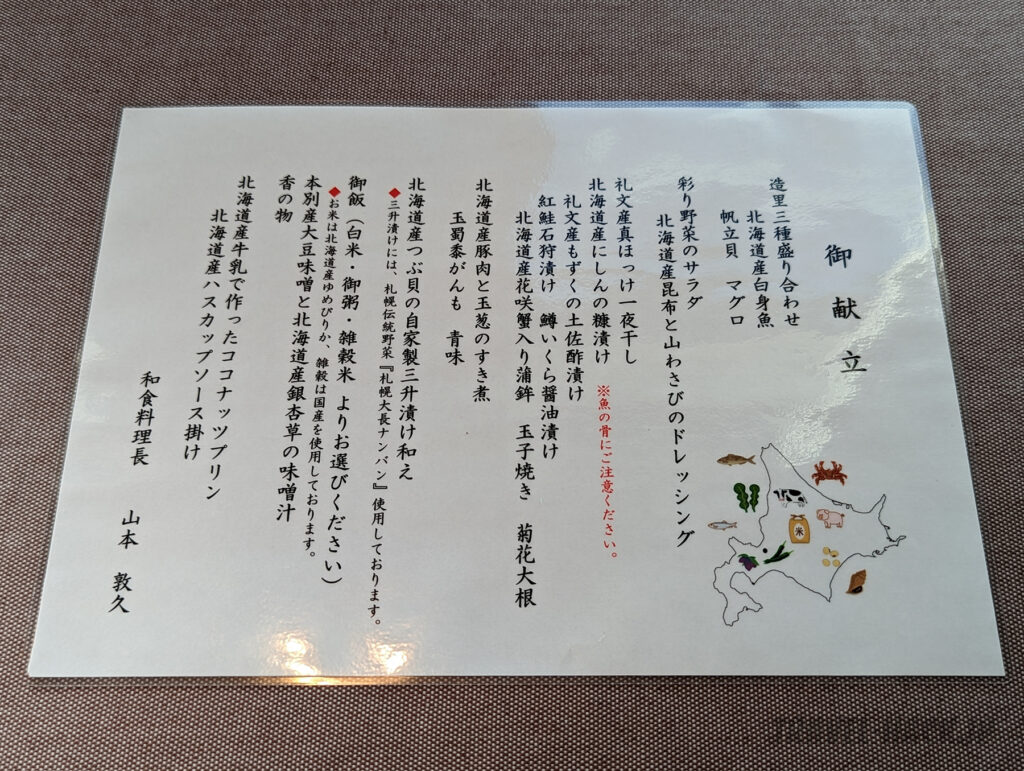 御献立
造里三種盛り合わせ
北海道産白身魚
帆立貝　マグロ
彩り野菜のサラダ
北海道産昆布と山わさびのドレッシング
礼文産真ほっけ一夜干し
※魚の骨にご注意ください。
北海道産にしんの糠漬け
礼文産もずくの土佐酢漬け
紅鮭石狩漬け　鱒いくら醤油漬け
北海道産花咲蟹入り蒲鉾　玉子焼き　菊花大根
北海道産豚肉と玉葱のすき煮
玉蜀黍がんも　青味
北海道産つぶ貝の自家製三升漬け和え
◆三升漬けには、札幌伝統野菜『札幌大長ナンバン』使用しております。
御飯（白米・御粥・雑穀米　よりお選びください）
◆お米は北海道産ゆめぴりか、雑穀は国産を使用しております。
本別産大豆味噌と北海道産銀杏草の味噌汁
香の物
北海道産牛乳で作ったココナッツプリン
北海道産ハスカップソース掛け
和食料理長　山本　敦久
米